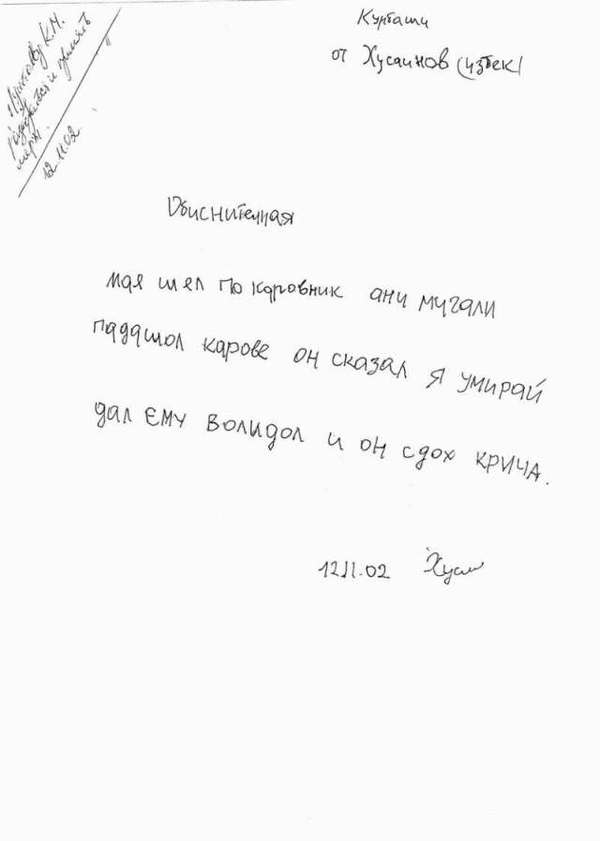 К.М.
разобраться и принять
меры.
12.11.02
Курбаши
от Хусаинов (избек)
Обиснителная
мая шел по каровник ани мугали
падашол карове он сказал я умирай
дал ему волидол и он сдох крича.
12.11.02 Хусаи